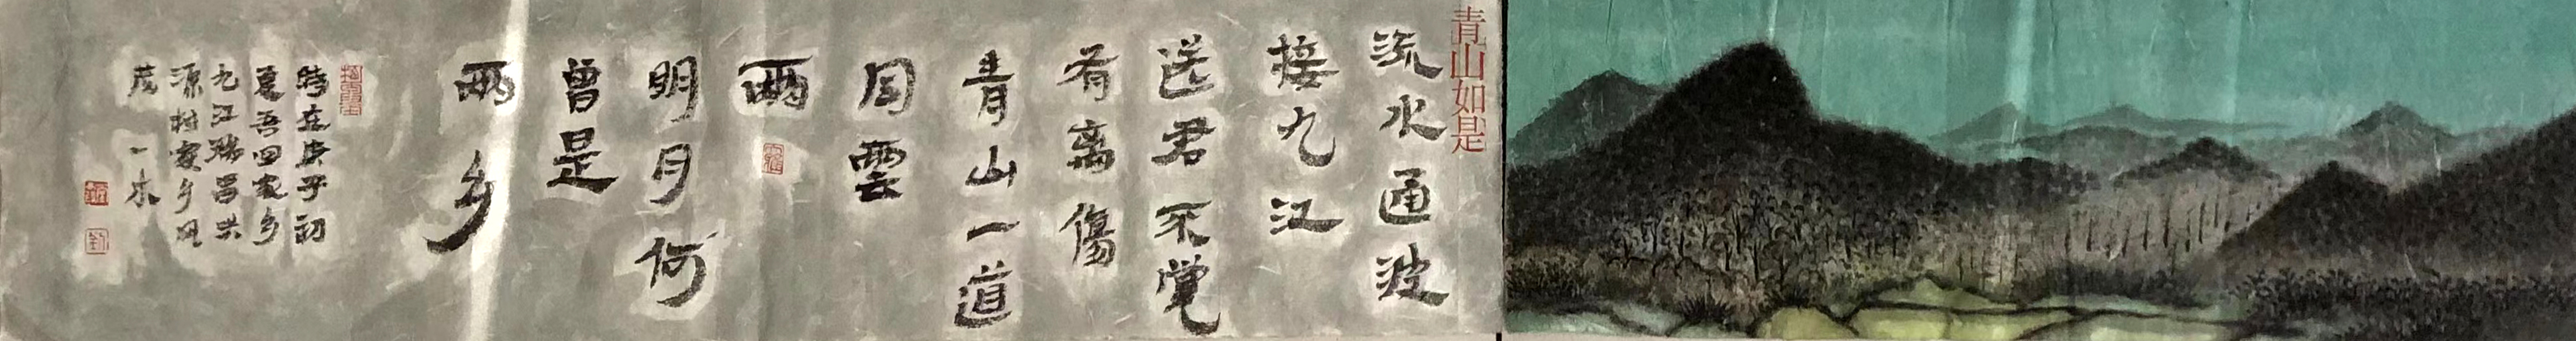 青山如是
流水通波
接九江
送君不覚
有离傷
青山一道
同雲
雨
明月何
曾是
两乡
時在庚子初
夏吾回家乡
九江瑞昌洪
源村家乡风
茂 一木